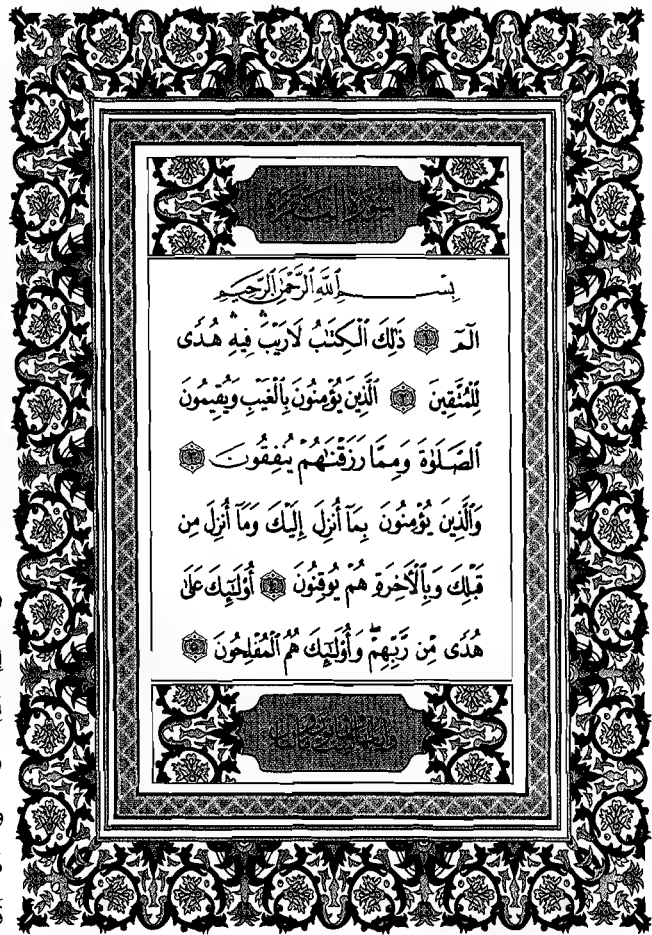 سورة البقرة
بِسْمِ ٱللَّهِ ٱلرَّحْمَٰنِ ٱلرَّحِيمِ
الٓمٓ ١ ذَٰلِكَ ٱلْكِتَٰبُ لَا رَيْبَ ۛ فِيهِ ۛ هُدًى
لِّلْمُتَّقِينَ ٢ ٱلَّذِينَ يُؤْمِنُونَ بِٱلْغَيْبِ وَيُقِيمُونَ
ٱلصَّلَوٰةَ وَمِمَّا رَزَقْنَٰهُمْ يُنفِقُونَ ٣
وَٱلَّذِينَ يُؤْمِنُونَ بِمَآ أُنزِلَ إِلَيْكَ وَمَآ أُنزِلَ مِن
قَبْلِكَ وَبِٱلْأَخِرَةِ هُمْ يُوقِنُونَ ٤ أُو۟لَٰٓئِكَ عَلَىٰ
هُدًى مِّن رَّبِّهِمْ ۖ وَأُو۟لَٰٓئِكَ هُمُ ٱلْمُفْلِحُونَ ٥